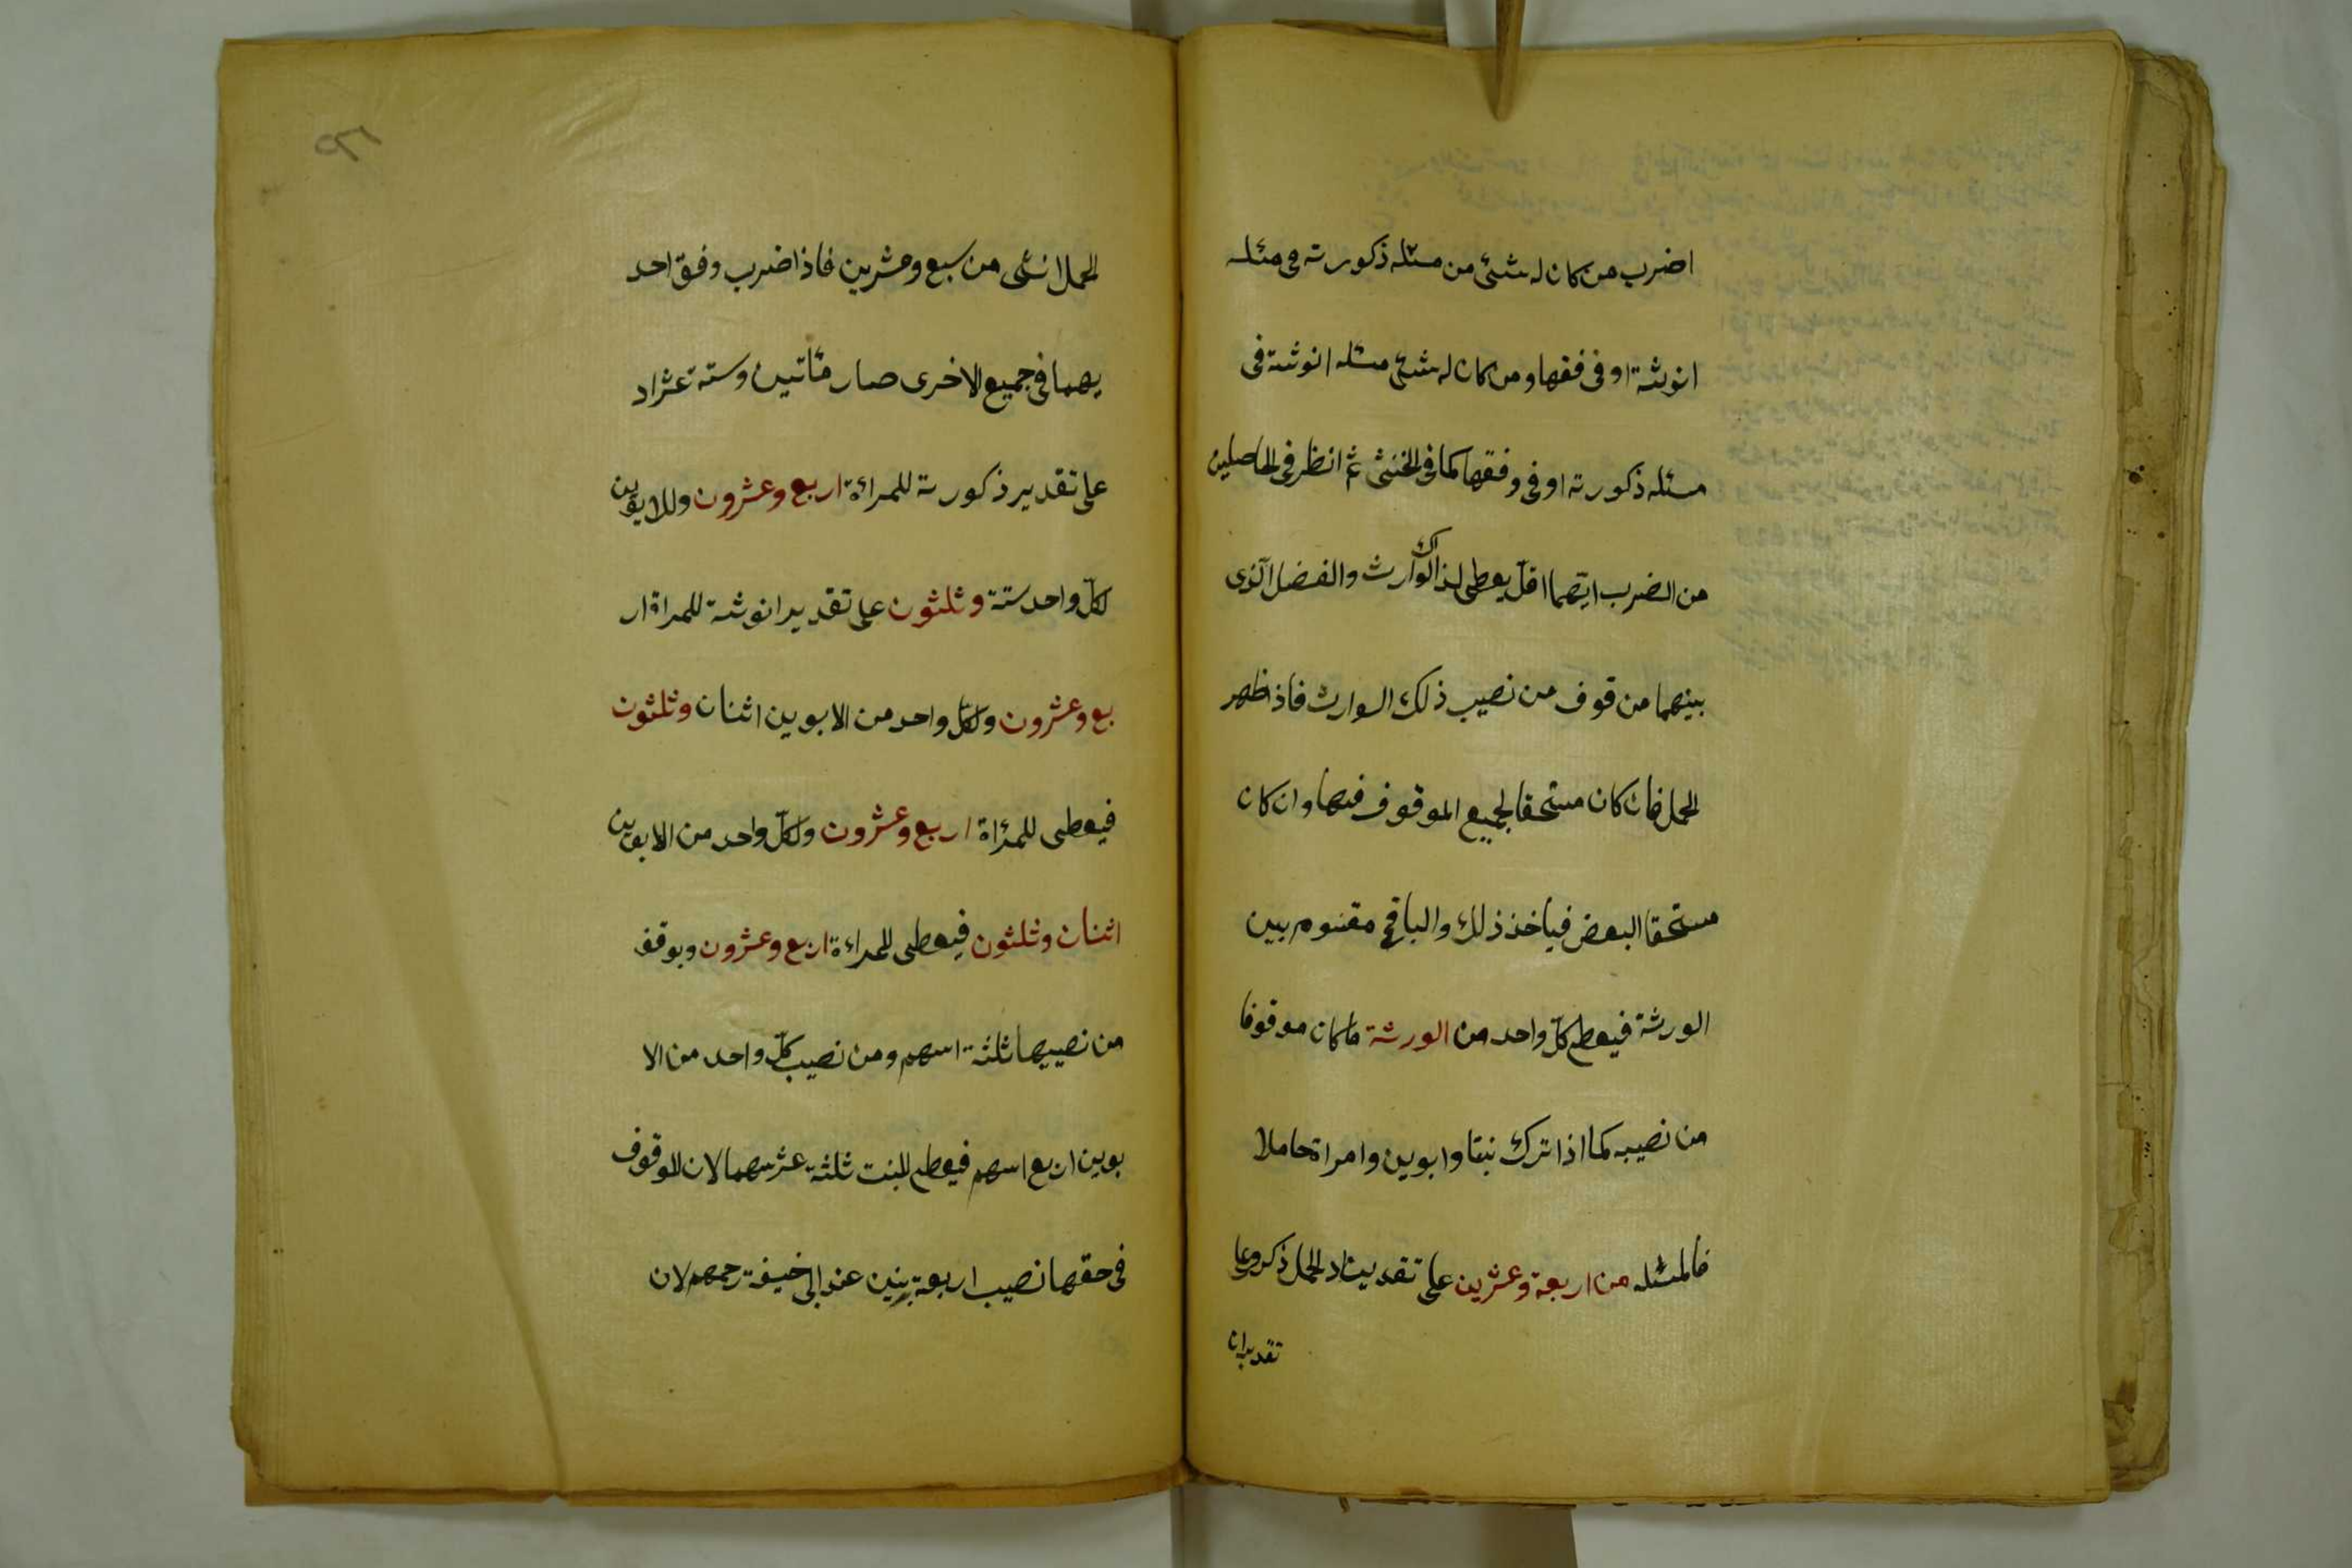 اضرب من كان له شئ من مسئله ذكورته فى مئله
انوثته او فى فقها ومن كان له شئ مسئله انوثته فى
مسئله ذكورته او فى وفقها كما فى الخنثى ثم انظر فى الحاصلين
من الضرب ايهما اقل يعطى لذالك الوارث والفضل الذى
بينهما من قوف من نصيب ذلك الوارث فاذا ظهر
الحمل فان كان مستحقا لجميع الموقوف فبها وان كان
مستحقا البعض فياخذ ذلك والباقى مقسوم بين
الورثة فيعطى كل واحد من الورثة ما كان موقوفا
من نصيبه كما اذا ترك بنتا وابوين وامراة حاملا
فالمسئله من اربعة وعشرين على تقدير ان الحمل ذكر وعلى
تقدير ان
الحمل انثى من سبع وعشرين فاذا ضرب وفق احد
يهما فى جميع الاخرى صار مأتين وستة عشر اذ
على تقدير ذكورته للمراة اربع وعشرون وللابوين
لكل واحد ستة وثلثون على تقدير انوثته للمراة ار
بع وعشرون ولكل واحد من الابوين اثنان وثلثون
فيعطى للمراة اربع وعشرون ولكل واحد من الابوين
اثنان وثلثون فيعطى للمراءة اربع وعشرون ويوقف
من نصيبها ثلثة اسهم ومن نصيب كل واحد من الا
بوين اربع اسهم فيعطى للبنت ثلثة عشر سهما لان الموقوف
فى حقها نصيب اربعة بنين عند ابى حنيفة رحمهم لان